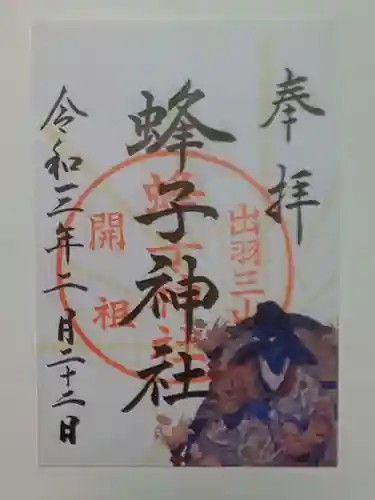 奉拝
蜂子神社
令和三年二月二十二日
出羽三山
蜂子神社
開祖